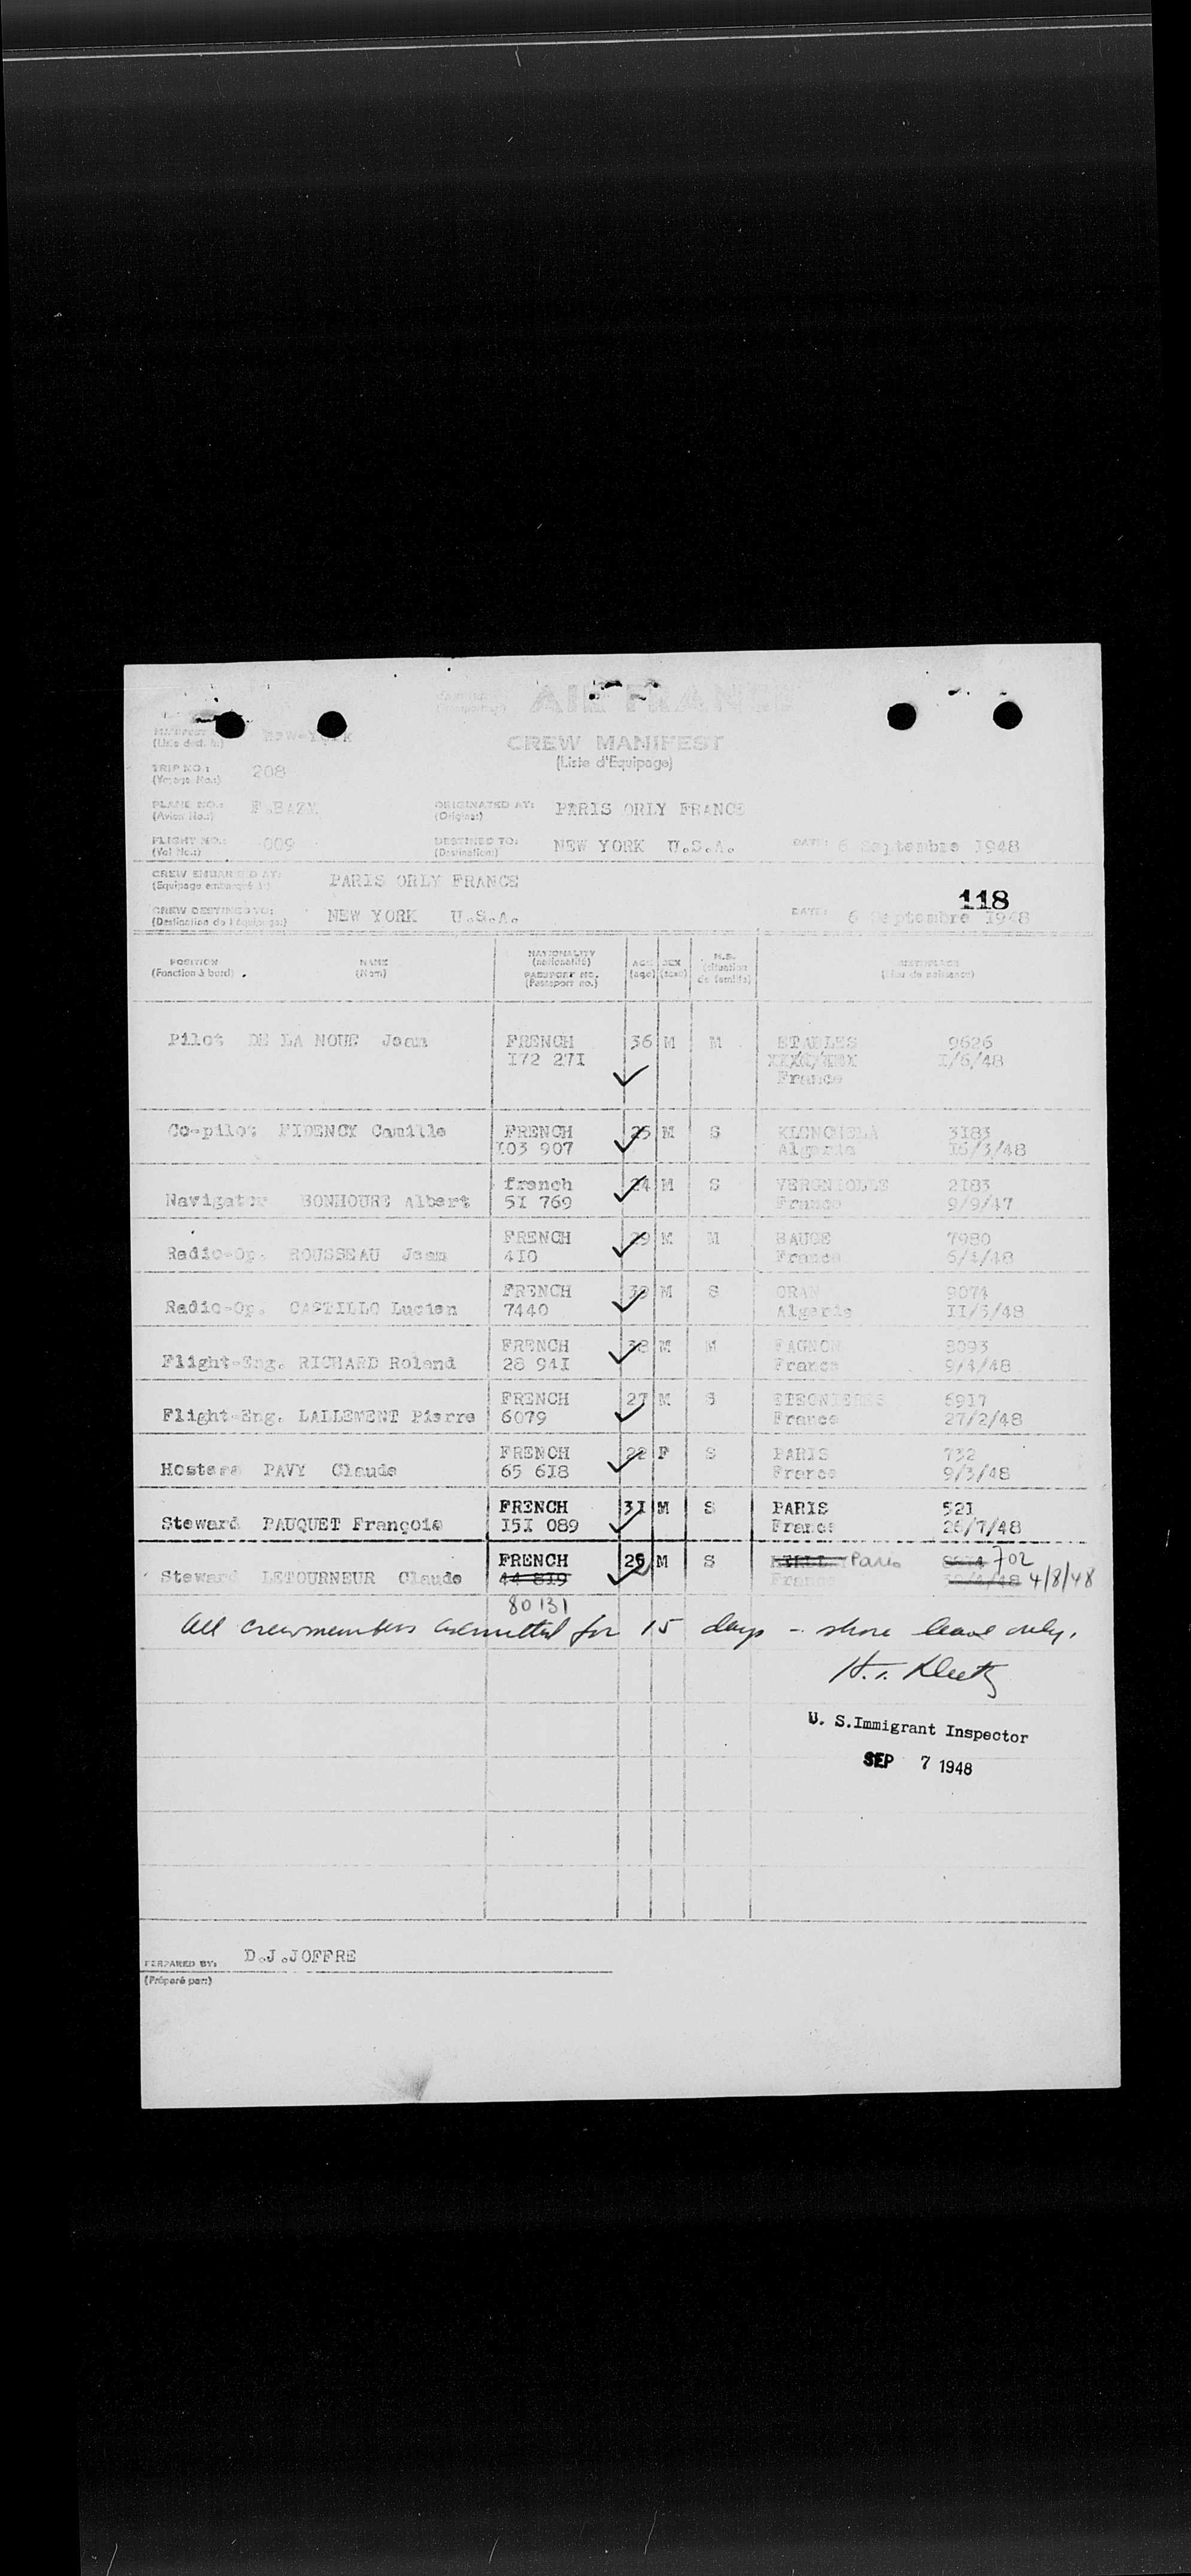 AIR FRANCE
CREW MANIFEST
(Liste d'Equipage)
New-York
TRIP NO.: 208
(Voyage No.:)
PLANE NO.:
(Avion No.:)
ORIGINATED AT: PARIS ORLY FRANCE
(Origine:)
FLIGHT NO.: 009
(Vol No.:)
DESTINED TO: NEW YORK U.S.A. DATE: 6 Septembre 1948
(Destination:)
CREW EMBARKED AT: PARIS ORLY FRANCE
(Equipage embarqué à:)
118
CREW DESTINED TO: NEW YORK U.S.A. DATE: 6 Septembre 1948
(Destination de l'équipage:)
POSITION NAME NATIONALITY AGE SEX M.S. BIRTHPLACE
(Fonction à bord) (Nom) (nationalité) (age) (sexe) (situation de famille) (Lieu de naissance)
PASSPORT NO.
(Passeport no.)
Pilot DE LA NOUE Jean FRENCH 36 M M ETABLES 9626
I72 27I I/6/48
France
Co-pilot FIDENCY Camille FRENCH 25 M S 3I83
I03 907 Algeria I6/3/48
french 24 M S VERGNIOLLE 2I83
Navigator BONHOURE Albert 5I 769 France 9/9/47
FRENCH 29 M M BAUGE 7980
Radio-Op. ROUSSEAU Jean 4I0 France 6/4/48
FRENCH M S ORAN 9074
Radio-Op. CASTILLO Lucien 7440 Algerie II/5/48
FRENCH 38 M M FAGNON 8093
Flight-Eng. RICHARD Roland 28 94I France 9/4/48
FRENCH 27 M S 69I7
Flight-Eng. LALLEMENT Pierre 6079 France 27/2/48
FRENCH 22 F S PARIS 732
Hostess PAVY Claude 65 6I8 France 9/3/48
FRENCH 3I M S PARIS 52I
Steward PAUQUET François I5I 089 France 26/7/48
FRENCH 26 M S Paris 702
Steward LETOURNEUR Claude 44 8I9 France 4/8/48
80131
All crewmembers admitted for 15 days - shore leave only.
U. S. Immigrant Inspector
SEP 7 1948
PREPARED BY: D.J.JOFFRE
(Préparé par:)